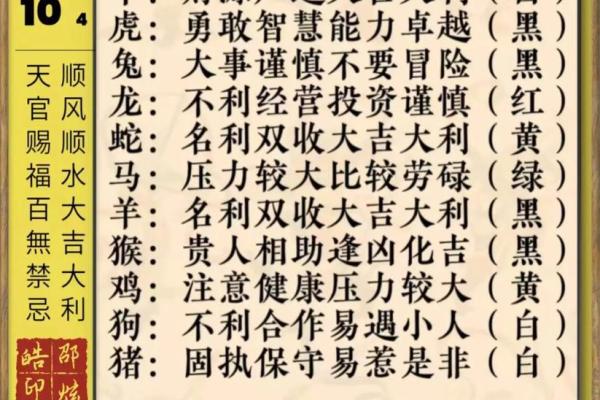 10
4
顺风顺水大吉大利
天官赐福百無禁忌
虎：勇敢智慧能力卓越（黑）
兔：大事谨慎不要冒险（黑）
龙：不利经营投资谨慎（红）
蛇：名利双收大吉大利（黄）
马：压力较大比较劳碌（绿）
羊：名利双收大吉大利（黑）
猴：贵人相助逢凶化吉（黑）
鸡：注意健康压力较大（黄）
狗：不利合作易遇小人（白）
猪：固执保守易惹是非（白）
邵
皓印